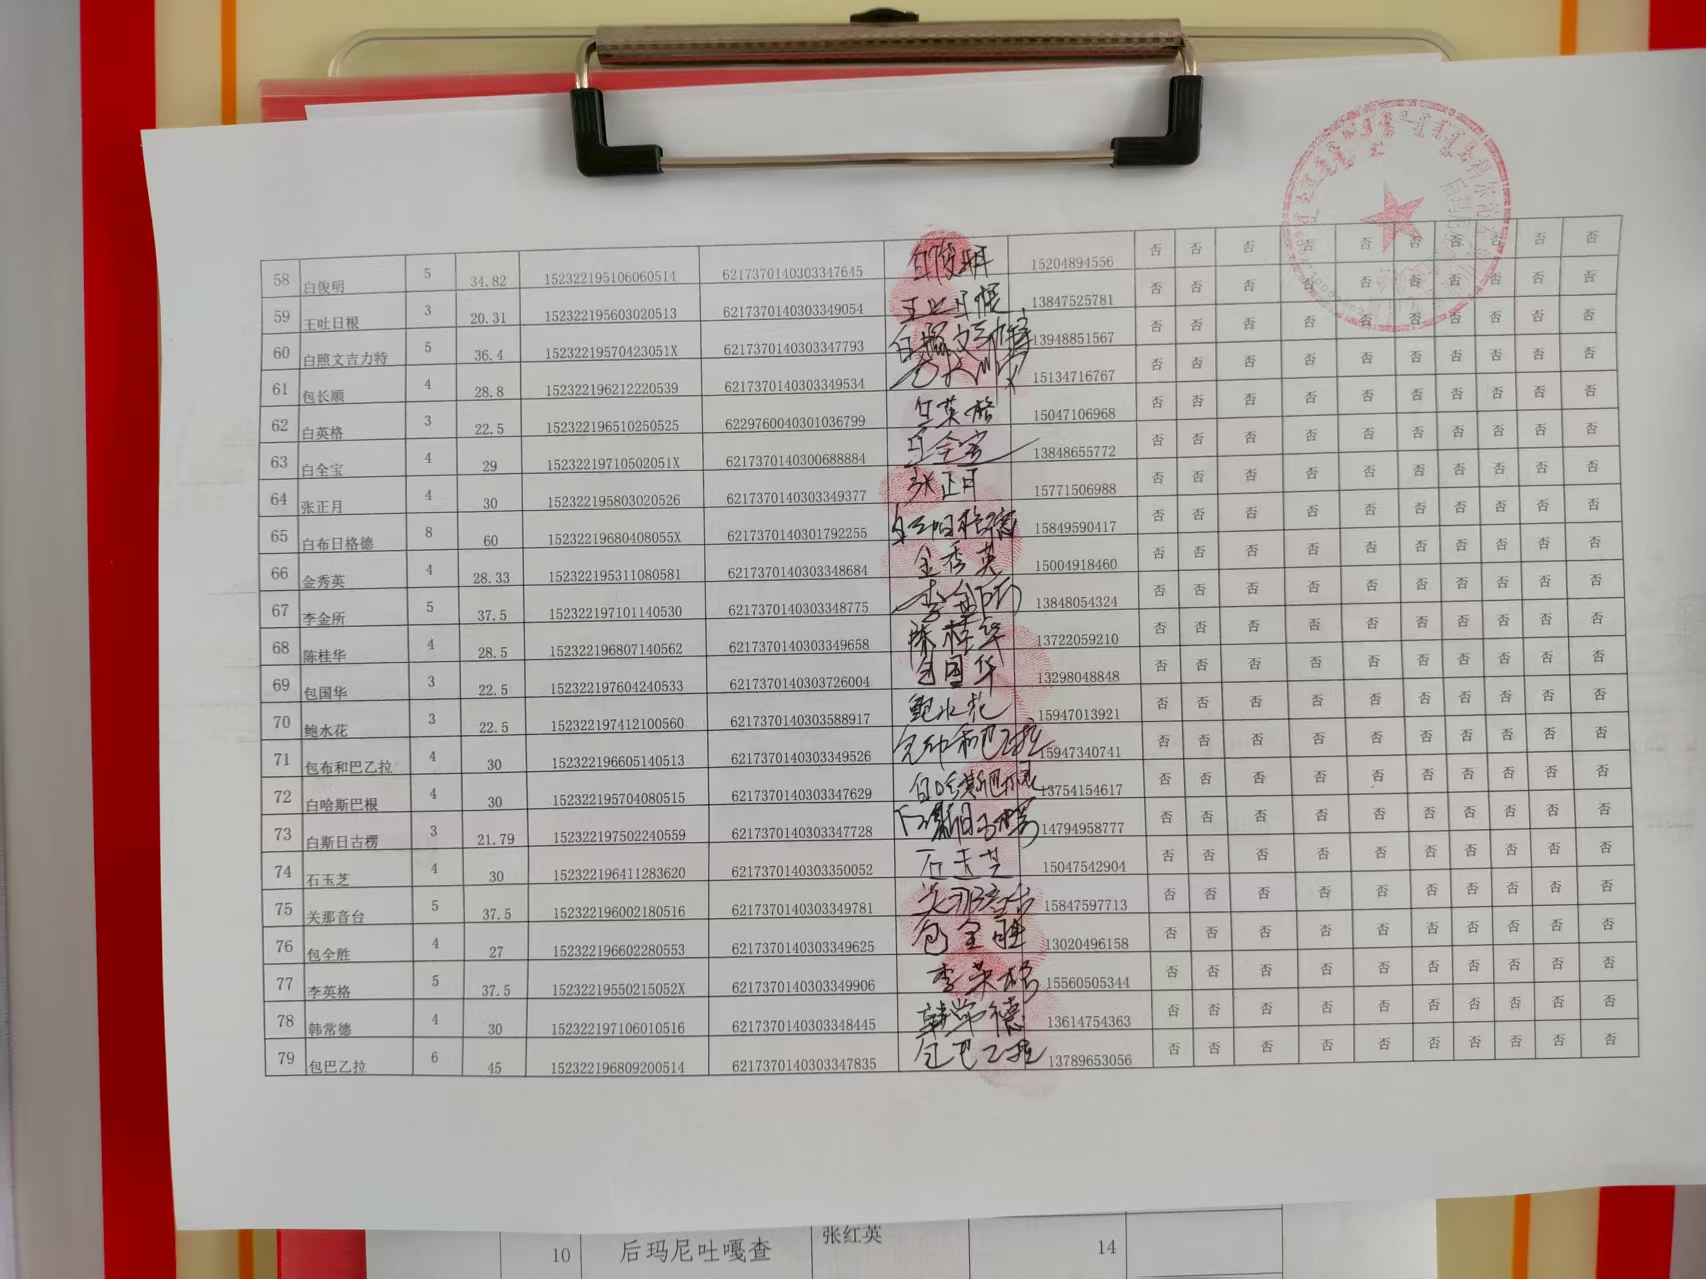 58 白俊明 5 34.82 152322195106060514 6217370140303347645 白俊明 15204894556 否 否 否 否 否 否 否 否 否 否
59 王吐日根 3 20.31 152322195603020513 6217370140303349054 王吐日根 13847525781 否 否 否 否 否 否 否 否 否 否
60 白照文吉力特 5 36.4 15232219570423051X 6217370140303347793 13948851567 否 否 否 否 否 否 否 否 否 否
61 包长顺 4 28.8 152322196212220539 6217370140303349534 15134716767 否 否 否 否 否 否 否 否 否 否
62 白英格 3 22.5 152322196510250525 6229760040301036799 白英格 15047106968 否 否 否 否 否 否 否 否 否 否
63 白全宝 4 29 15232219710502051X 6217370140300688884 白全宝 13848655772 否 否 否 否 否 否 否 否 否 否
64 张正月 4 30 152322195803020526 6217370140303349377 张正月 15771506988 否 否 否 否 否 否 否 否 否 否
65 白布日格德 8 60 15232219680408055X 6217370140301792255 白布日格德 15849590417 否 否 否 否 否 否 否 否 否 否
66 金秀英 4 28.33 152322195311080581 6217370140303348684 金秀英 15004918460 否 否 否 否 否 否 否 否 否 否
67 李金所 5 37.5 152322197101140530 6217370140303348775 李金所 13848054324 否 否 否 否 否 否 否 否 否 否
68 陈桂华 4 28.5 152322196807140562 6217370140303349658 陈桂华 13722059210 否 否 否 否 否 否 否 否 否 否
69 包国华 3 22.5 152322197604240533 6217370140303726004 包国华 13298048848 否 否 否 否 否 否 否 否 否 否
70 鲍水花 3 22.5 152322197412100560 6217370140303588917 鲍水花 15947013921 否 否 否 否 否 否 否 否 否 否
71 包布和巴乙拉 4 30 152322196605140513 6217370140303349526 包布和巴乙拉 15947340741 否 否 否 否 否 否 否 否 否 否
72 白哈斯巴根 4 30 152322195704080515 6217370140303347629 白哈斯巴根 13754154617 否 否 否 否 否 否 否 否 否 否
73 白斯日古楞 3 21.79 152322197502240559 6217370140303347728 14794958777 否 否 否 否 否 否 否 否 否 否
74 石玉芝 4 30 152322196411283620 6217370140303350052 石玉芝 15047542904 否 否 否 否 否 否 否 否 否 否
75 关那音台 5 37.5 152322196002180516 6217370140303349781 关那音台 15847597713 否 否 否 否 否 否 否 否 否 否
76 包全胜 4 27 152322196602280553 6217370140303349625 包全胜 13020496158 否 否 否 否 否 否 否 否 否 否
77 李英格 5 37.5 15232219550215052X 6217370140303349906 李英格 15560505344 否 否 否 否 否 否 否 否 否 否
78 韩常德 4 30 152322197106010516 6217370140303348445 韩常德 13614754363 否 否 否 否 否 否 否 否 否 否
79 包巴乙拉 6 45 152322196809200514 6217370140303347835 包巴乙拉 13789653056 否 否 否 否 否 否 否 否 否 否
10 后玛尼吐嘎查 张红英 14